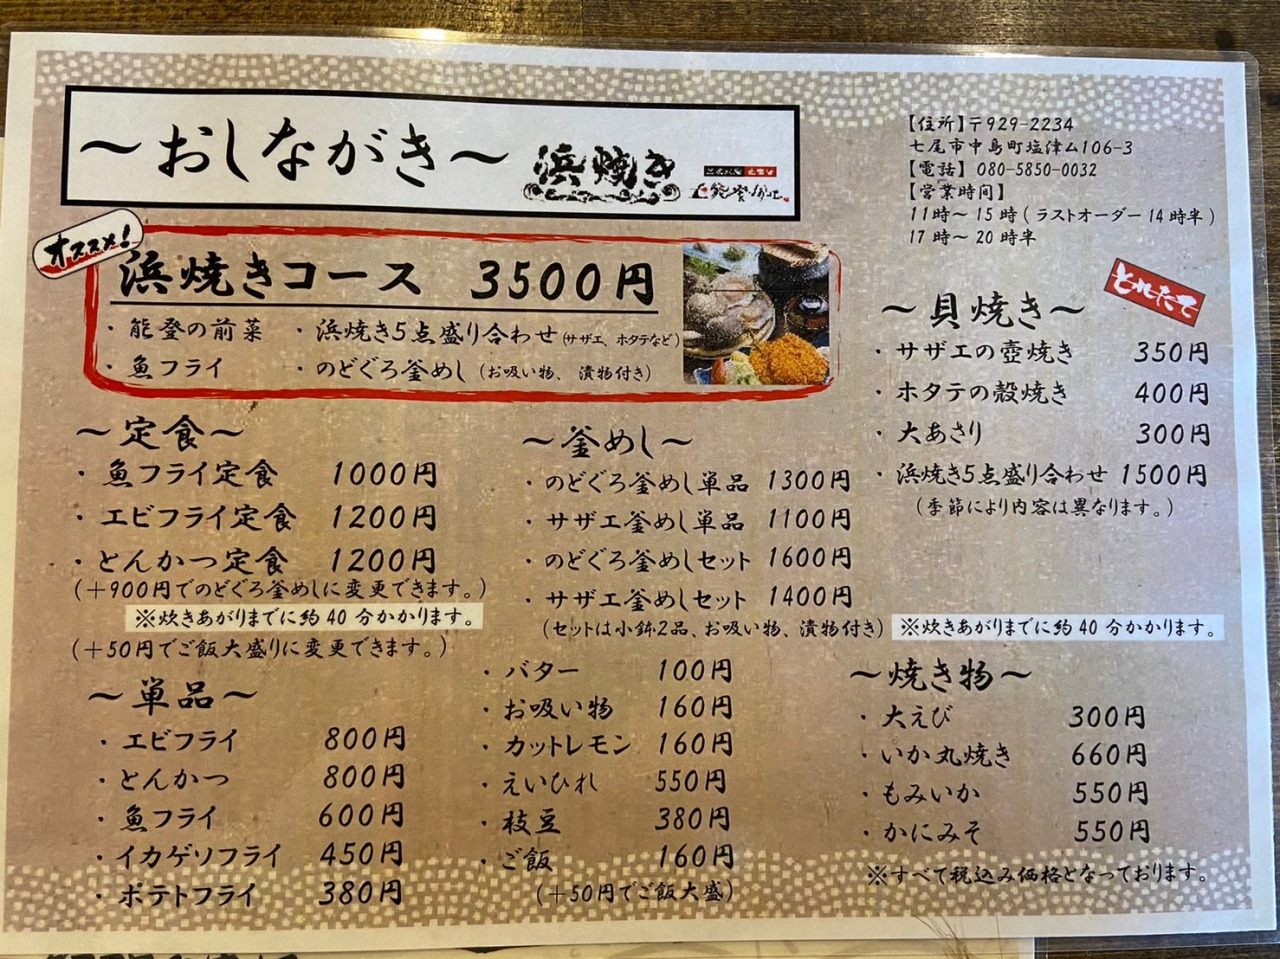 ～おしながき～
浜焼き
【住所】〒929-2234
七尾市中島町塩津ム106-3
【電話】 080-5850-0032
【営業時間】
11時～15時(ラストオーダー14時半)
17時～20時半
オススメ!
浜焼きコース 3500円
・能登の前菜 ・浜焼き5点盛り合わせ(サザエ、ホタテなど)
・魚フライ ・のどぐろ釜めし(お吸い物、漬物付き)
～貝焼き～
とれたて
・サザエの壺焼き 350円
・ホタテの殻焼き 400円
・大あさり 300円
・浜焼き5点盛り合わせ 1500円
(季節により内容は異なります。)
～定食～
・魚フライ定食 1000円
・エビフライ定食 1200円
・とんかつ定食 1200円
(＋900円でのどぐろ釜めしに変更できます。)
※炊きあがりまでに約40分かかります。
(＋50円でご飯大盛りに変更できます。)
～釜めし～
・のどぐろ釜めし単品 1300円
・サザエ釜めし単品 1100円
・のどぐろ釜めしセット 1600円
・サザエ釜めしセット 1400円
(セットは小鉢2品、お吸い物、漬物付き)
※炊きあがりまでに約40分かかります。
～単品～
・エビフライ 800円
・とんかつ 800円
・魚フライ 600円
・イカゲソフライ 450円
・ポテトフライ 380円
・バター 100円
・お吸い物 160円
・カットレモン 160円
・えいひれ 550円
・枝豆 380円
・ご飯 160円
(＋50円でご飯大盛)
～焼き物～
・大えび 300円
・いか丸焼き 660円
・もみいか 550円
・かにみそ 550円
※すべて税込み価格となっております。